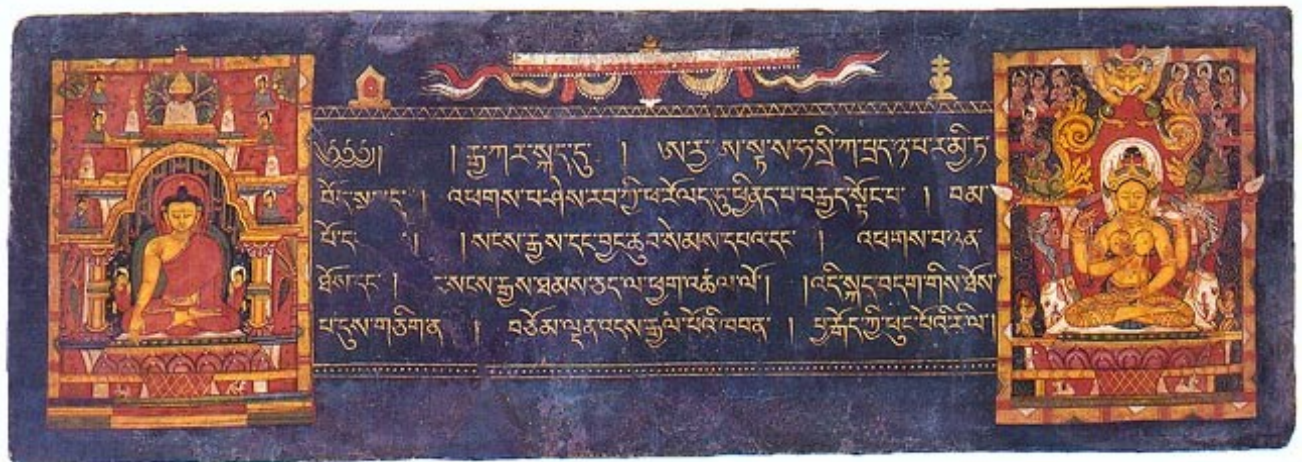 ༄༅༅༅། །རྒྱ་ཀར་སྐད་དུ །ཨརྱ་ཨ་སྟ་ས་ཧ་སྲི་ཀ་པྲད་ཉ་པ་ར་མྱི་ཏ་
བོད་སྐད་དུ། འཕགས་པ་ཤེས་རབ་ཀྱི་ཕ་རོལ་དུ་ཕྱིནད་པ་བརྒྱད་སྟོང་པ། བམ་
པོ་དང །སངས་རྒྱས་དང་བྱང་ཆུབ་སེམས་དཔའ་དང །འཕགས་པ་ཉན་
ཐོས་དང །སངས་རྒྱས་ཐམས་ཅད་ལ་ཕྱག་འཚལ་ལོ། །འདི་སྐད་བདག་གིས་ཐོས་
པ་དུས་གཅིག་ན །བཅོམ་ལྡན་འདས་རྒྱལ་པོའི་ཁབ་ན །བྱ་རྒོད་ཀྱི་ཕུང་པོའི་རི་ལ།